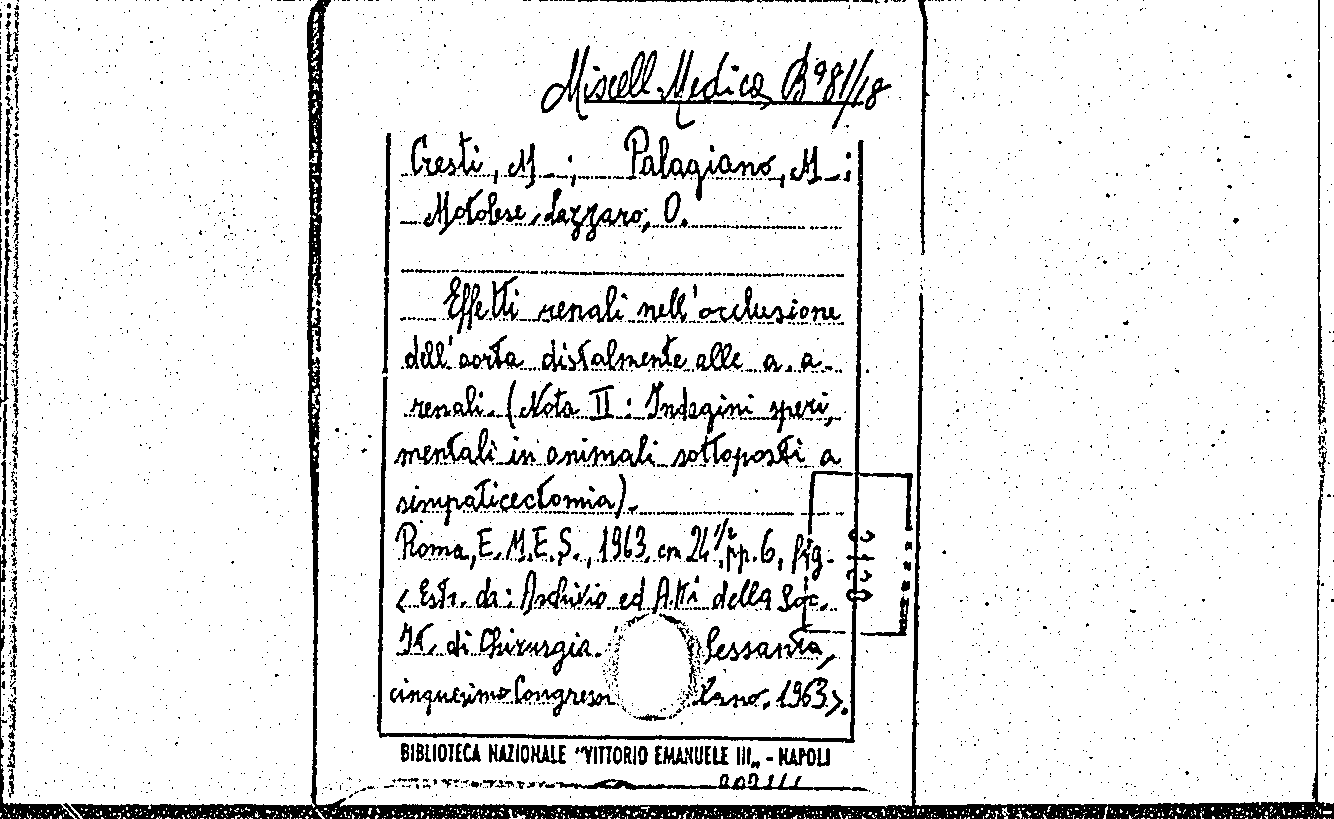 Miscell. Medica B 981/18
Cresti, M.; Palagiano, M.;
Motolese, Lazzaro, O.
Effetti renali nell'occlusione
dell'aorta distalmente alle a. a.
renali. (Nota II: Indagini speri,
mentali in animali sottoposti a
simpaticectomia).
Roma, E.M.E.S., 1963. cm 24, pp. 6, fig.
<Estr. da: Archivio ed Atti della Soc.
It. di Chirurgia. Sessanta,
cinquesimo Congresso 1963>.
BIBLIOTECA NAZIONALE "VITTORIO EMANUELE III„ - NAPOLI